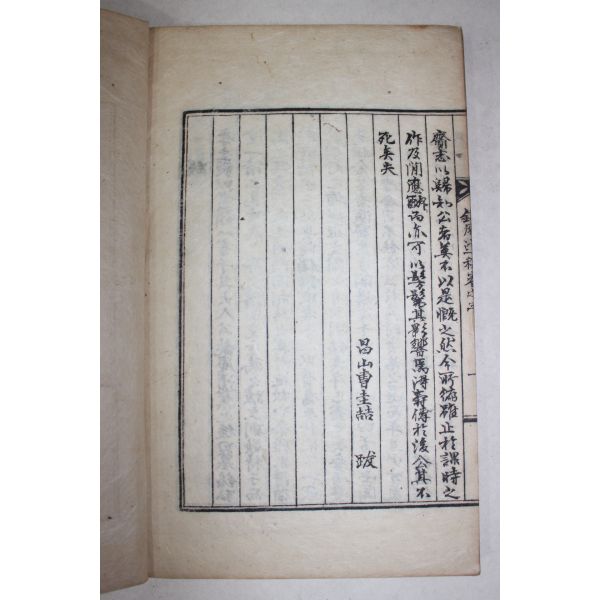 齋志以歸知公者莫不以是慨之然今所存雖止於課時之
作及閒應酬而亦可以髣髴其影響焉得壽傳於後公其不
死矣夫
昌山曺圭喆 跋